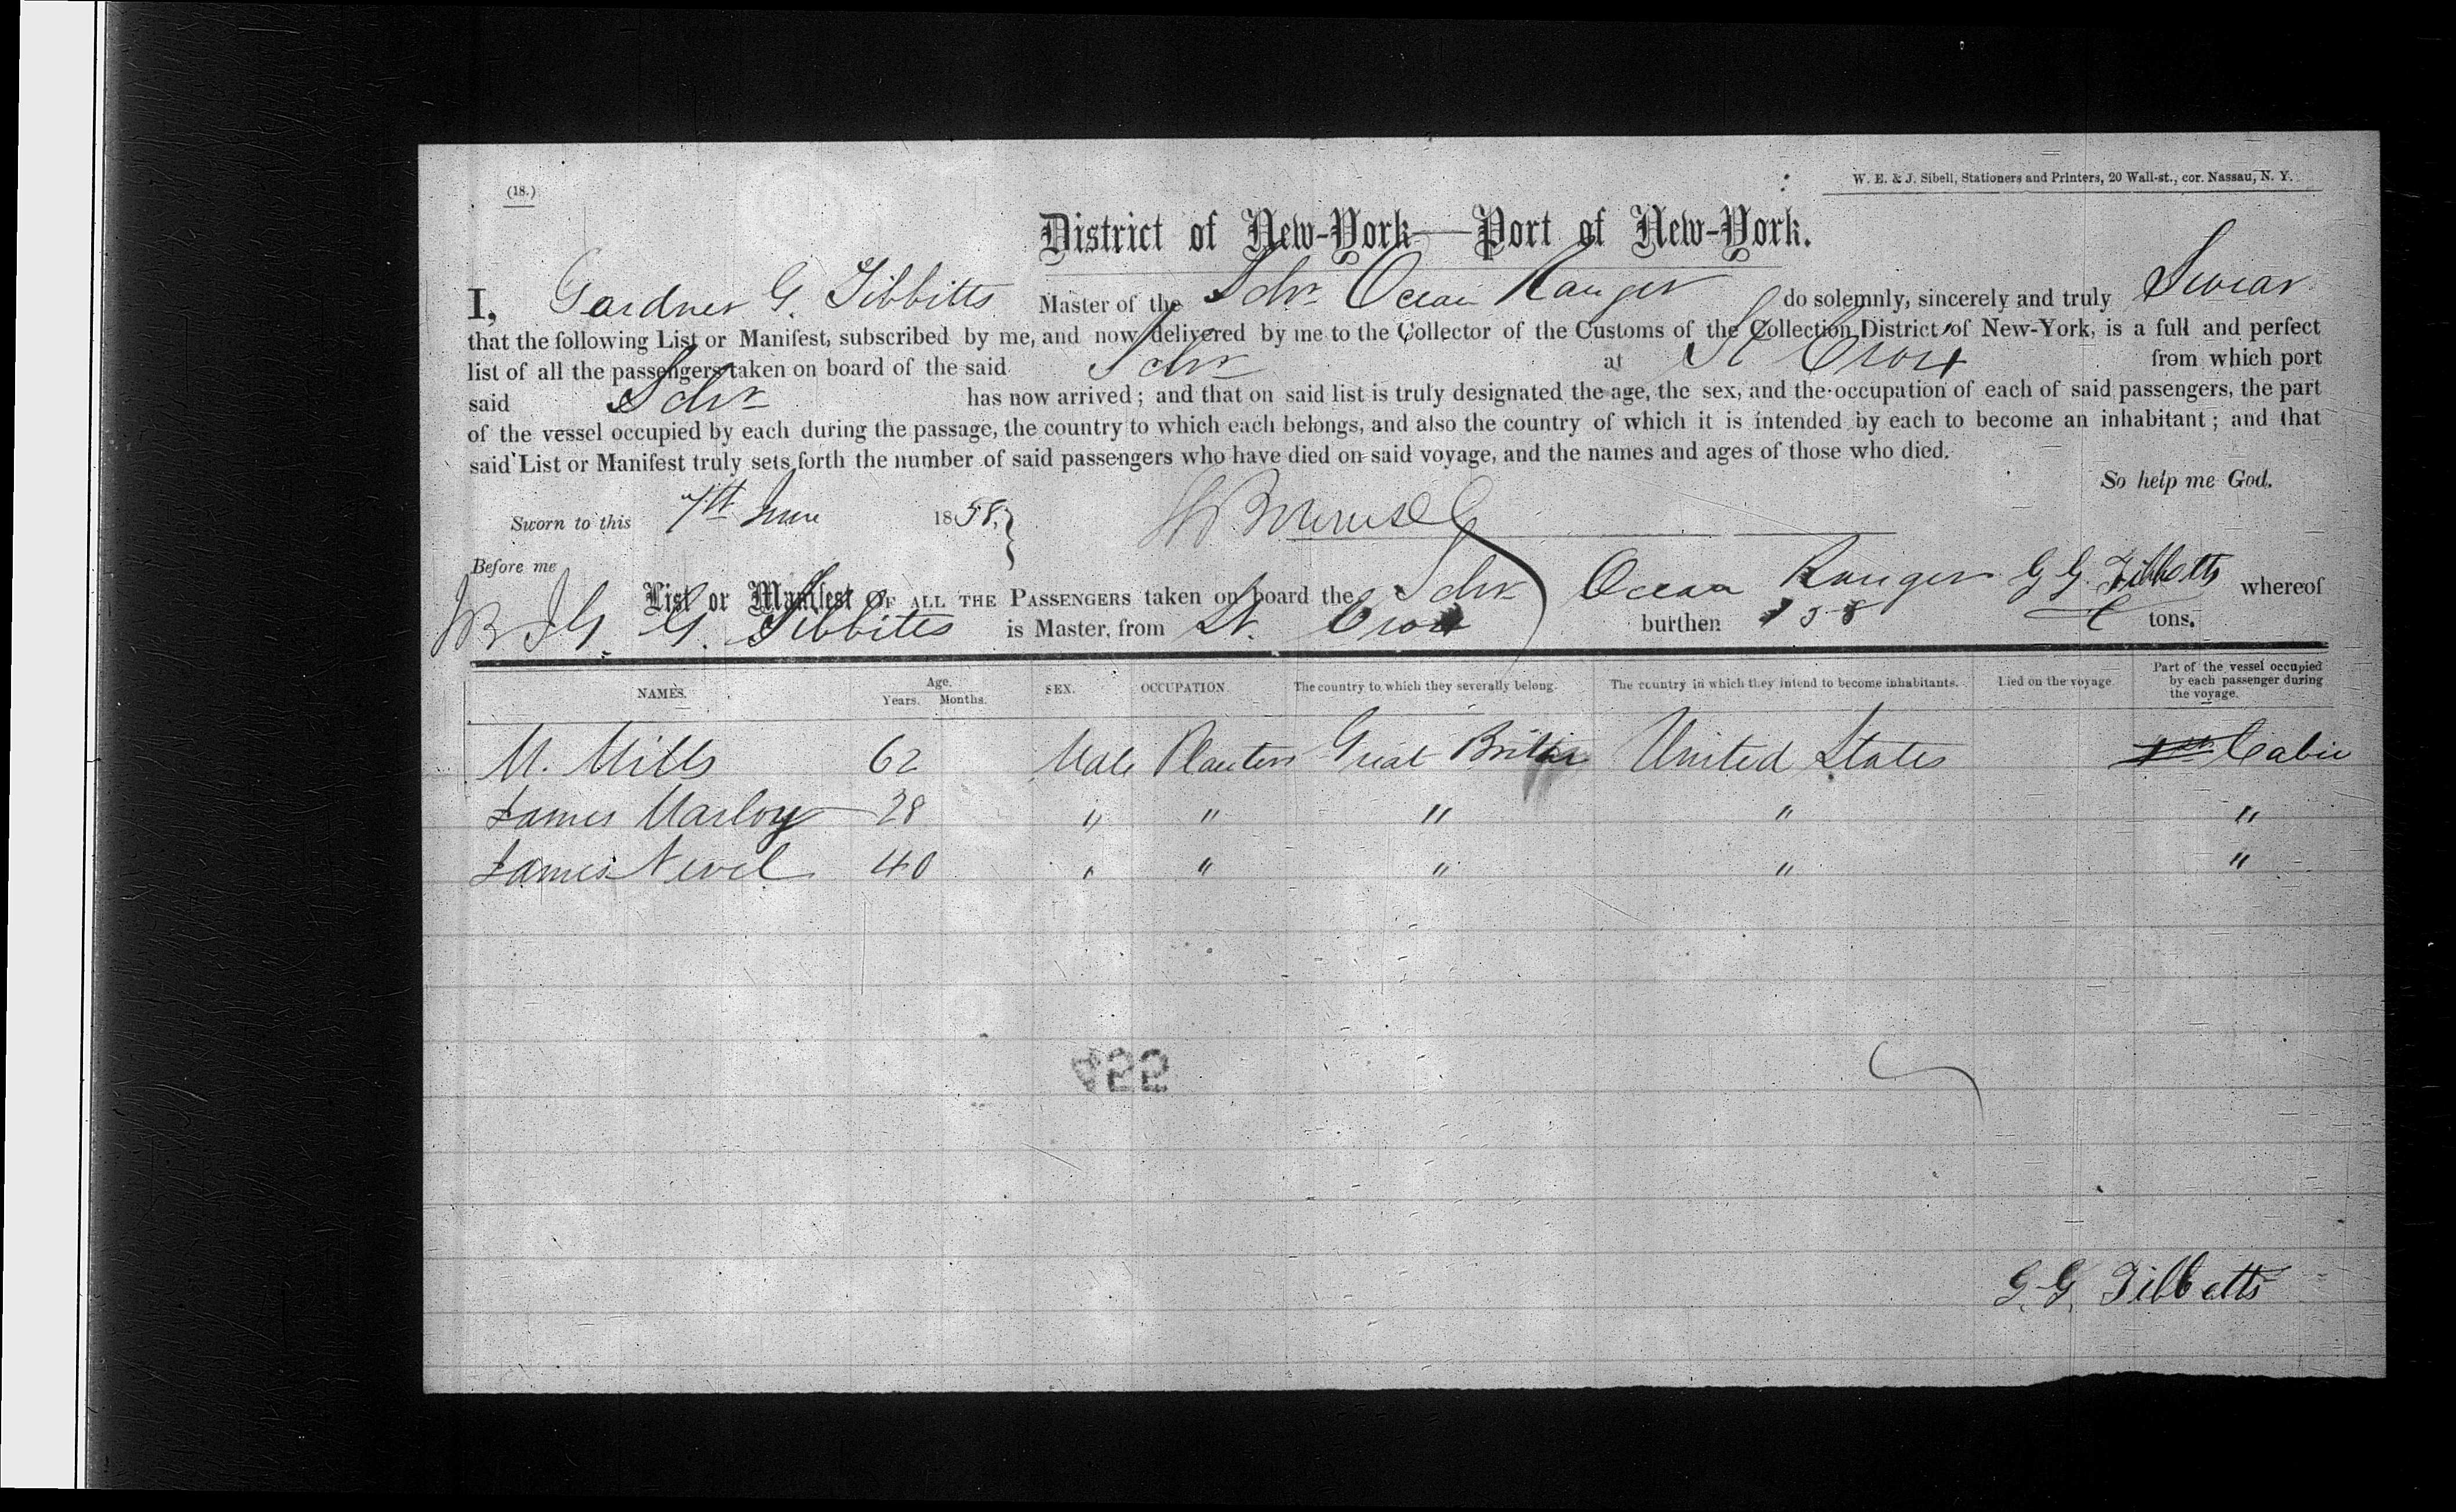 (18.)
W. E. & J. Sibell, Stationers and Printers, 20 Wall-st., cor. Nassau, N. Y.
District of New-York—Port of New-York.
I, Gardner G. Tibbitts Master of the Schr Ocean Ranger do solemnly, sincerely and truly Swear
that the following List or Manifest, subscribed by me, and now delivered by me to the Collector of the Customs of the Collection District of New-York, is a full and perfect
list of all the passengers taken on board of the said Schr at St Croix from which port
said Schr has now arrived; and that on said list is truly designated the age, the sex, and the occupation of each of said passengers, the part
of the vessel occupied by each during the passage, the country to which each belongs, and also the country of which it is intended by each to become an inhabitant; and that
said List or Manifest truly sets forth the number of said passengers who have died on said voyage, and the names and ages of those who died.
So help me God.
Sworn to this 7th June 1858
Before me
List or Manifest OF ALL THE PASSENGERS taken on board the Schr Ocean Ranger G G Tibbetts whereof
G. Tibbitts is Master, from St. Croix burthen 158 tons.
NAMES. Age. Years. Months. SEX. OCCUPATION. The country to which they severally belong. The country in which they intend to become inhabitants. Died on the voyage. Part of the vessel occupied by each passenger during the voyage.
M. Mills 62 Male Planters Great Britain United States Cabin
James Marloy 28 " " " " "
James Nevel 40 " " " " "
422
G. G. Tibbetts